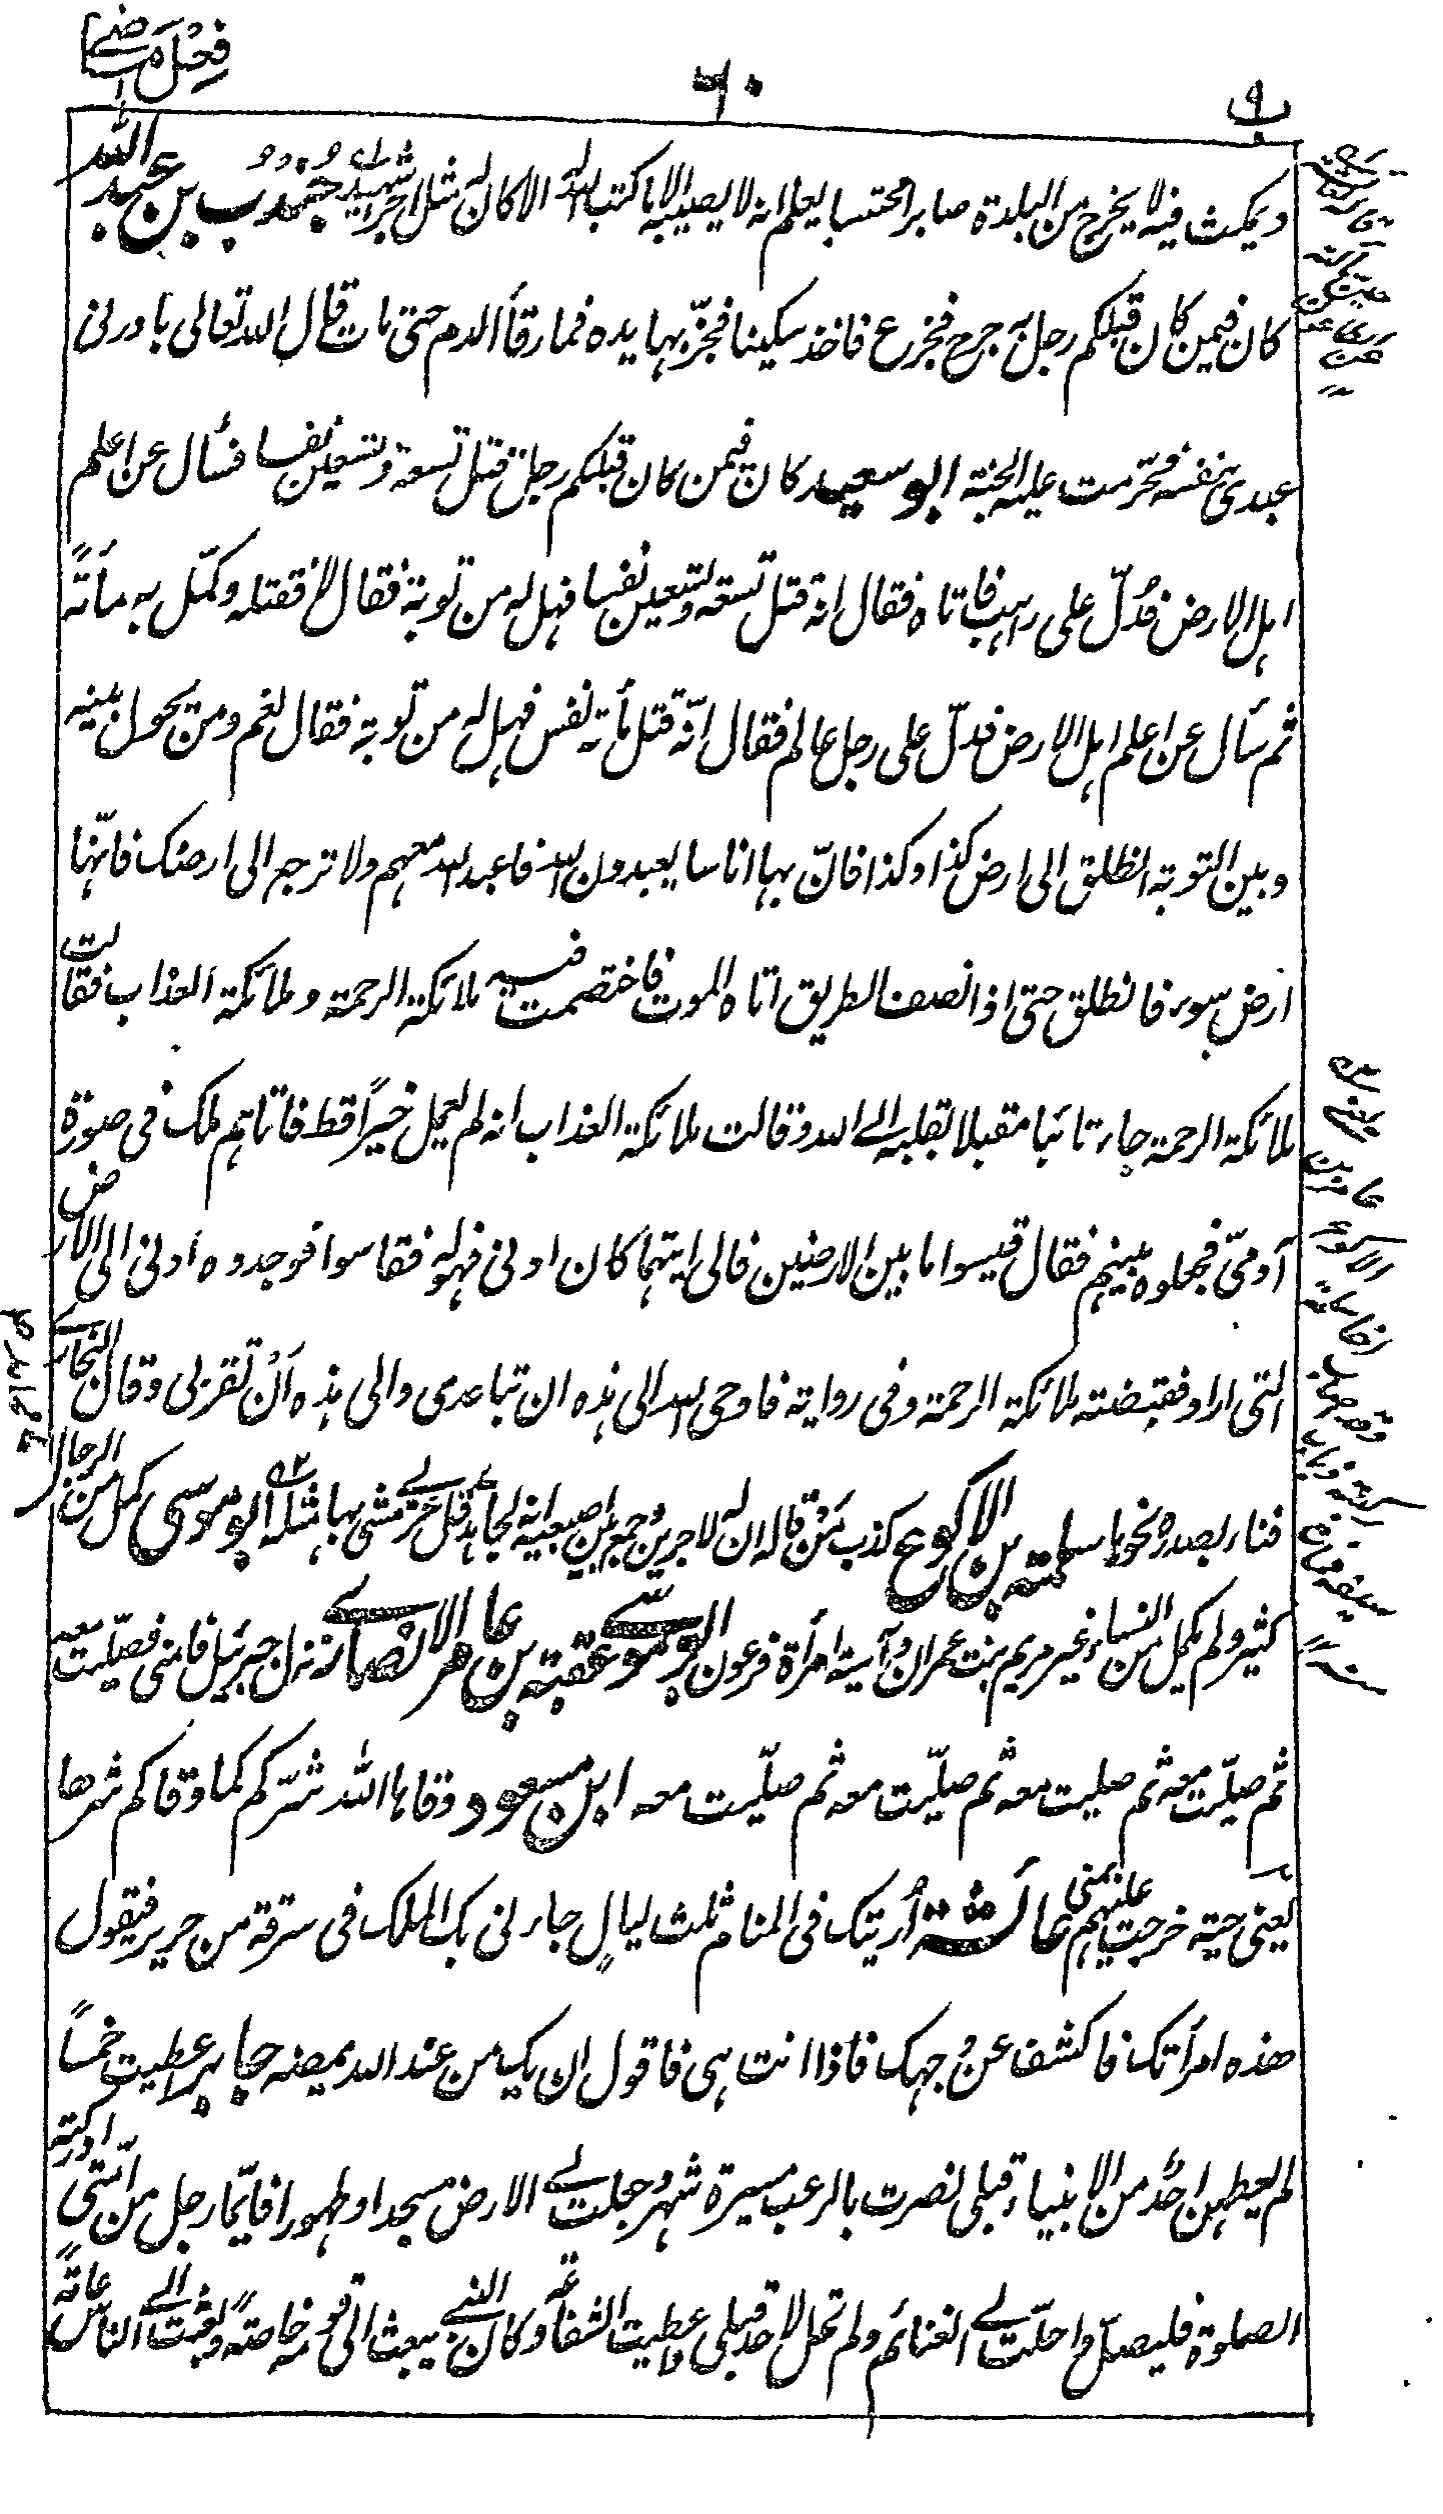 فعل ماضی
٦٠
ويمكث فيه لا يخرج من البلدة صابرا محتسبا يعلم انه لا يصيبه الا ما كتب الله له الا كان له مثل اجر شهيد جُنْدُب بن عبد الله
كان فيمن كان قبلكم رجل به جرح فجزع فاخذ سكينا فحزّ بها يده فما رقأ الدم حتى مات قال الله تعالى بادرنى
عبدى بنفسه فحرّمت عليه الجنة ابو سعيد كان فيمن كان قبلكم رجل قتل تسعة وتسعين نفسا فسأل عن اعلم
اهل الارض فدُلّ على راهب فاتاه فقال انه قتل تسعة وتسعين نفسا فهل له من توبة فقال لا فقتله وكمّل به مأتةً
ثم سأل عن اعلم اهل الارض فدلّ على رجل عالم فقال انّه قتل مأتة نفس فهل له من توبة فقال نعم ومن يحول بينه
وبين التوبة انطلق الى ارض كذا وكذا فانّ بها اناسا يعبدون الله فاعبد الله معهم ولا ترجع الى ارضك فانّها
ارض سوء فانطلق حتى اذا نصف الطريق اتاه الموت فاختصمت فيه ملائكة الرحمة وملائكة العذاب فقالت
ملائكة الرحمة جاء تائبا مقبلا بقلبه الى الله وقالت ملائكة العذاب انه لم يعمل خيراً قط فاتاهم ملك فى صورة
آدمىّ فجعلوه بينهم فقال قيسوا ما بين الارضين فالى ايتهما كان ادنى فهو له فقاسوا فوجدوه ادنى الى الارض
التى اراد فقبضته ملائكة الرحمة وفى رواية فاوحى الله الى هذه ان تباعدى والى هذه اَنْ تقربى وقال البخارى
فناء بصدره نحوها سلمة بن الاكوع كذب مَنْ قاله ان له لاجرين وجمع بين اصبعيه انه لجاهد قل عربى مشى بها مثله ابو موسى كمل من الرجال
كثير ولم يكمل من النساء غير مريم بنت عمران وآسية امرأة فرعون ابو مسعود عقبة بن عامر الانصارى نزل جبرئيل فامنى فصلّيت معه
ثم صلّيت معه ثم صليت معه ثم صلّيت معه ثم صلّيت معه ابن مسعود وقاها الله شرّكم كما وقاكم شرها
يعنى حية خرجت عليهم بمنى عائشة اُريتك فى المنام ثلث ليالٍ جاءنى بك الملك فى سرقة من حرير فيقول
هذه امرأتك فاكشف عن وجهك فاذا انت هى فاقول ان يك من عند الله يمضه جابر اعطيت خمساً
لم يعطهن احدٌ من الانبياء قبلى نصرت بالرعب مسيرة شهر وجعلت لى الارض مسجدا وطهورا فايّما رجل من امّتى ادركته
الصلوة فليصلّ واحلّت لى الغنائم ولم تحل لاحد قبلى واعطيت الشفاعة وكان النبى يبعث الى قومه خاصةً وبعثت الى الناس عامّةً